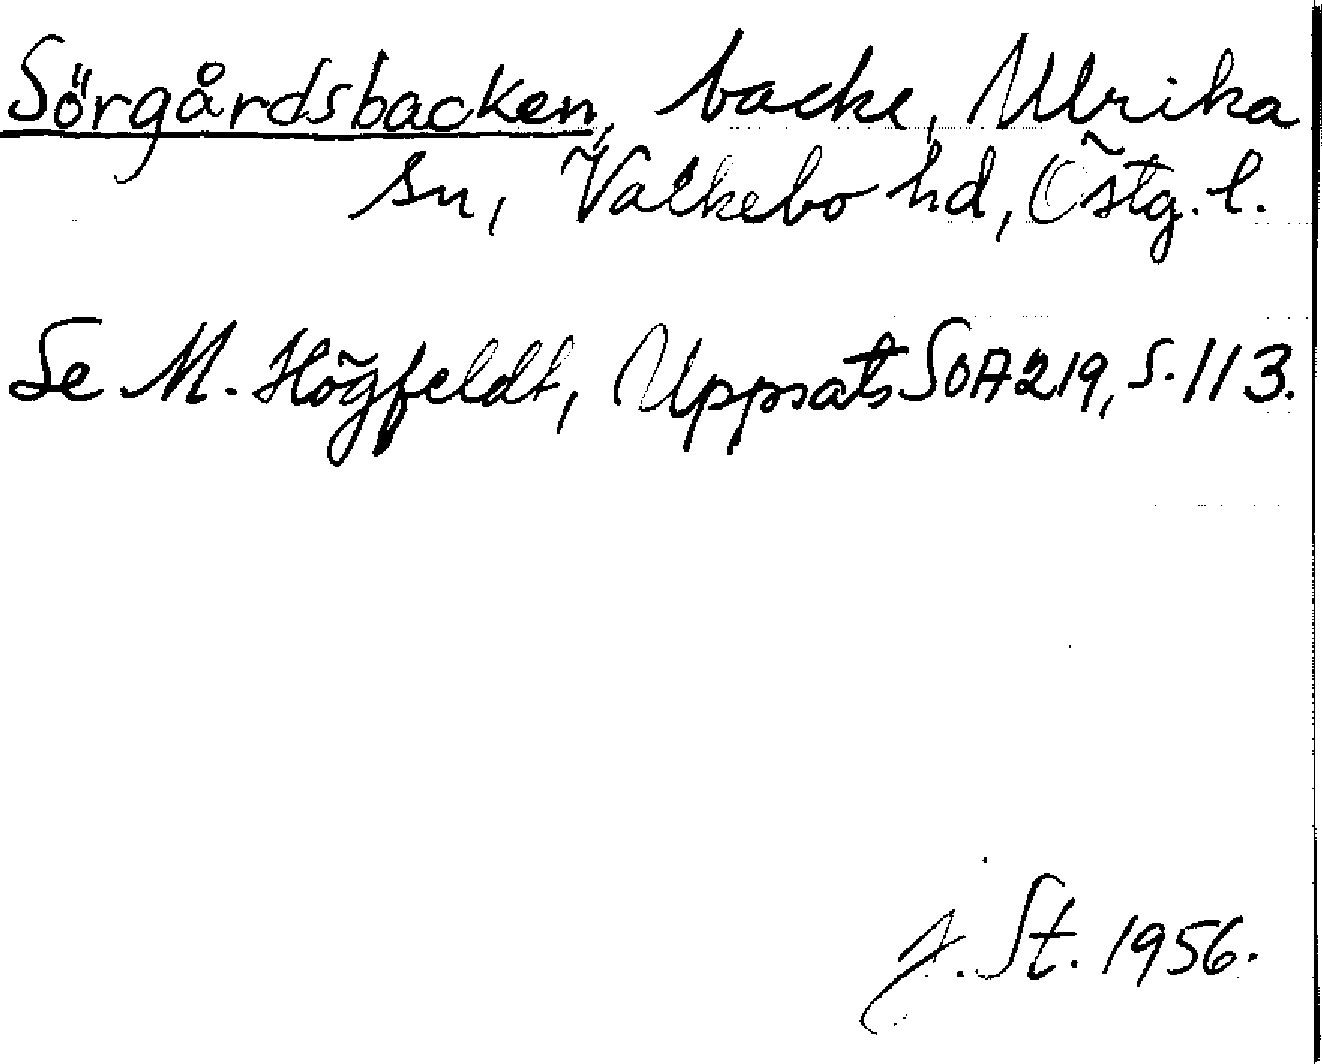 Sörgårdsbacken, backe, Ulrika
sn, Valkebo hd, Östg. l.
Se M. Högfeldt, Uppsats SOA 219, s. 113.
J. St. 1956.